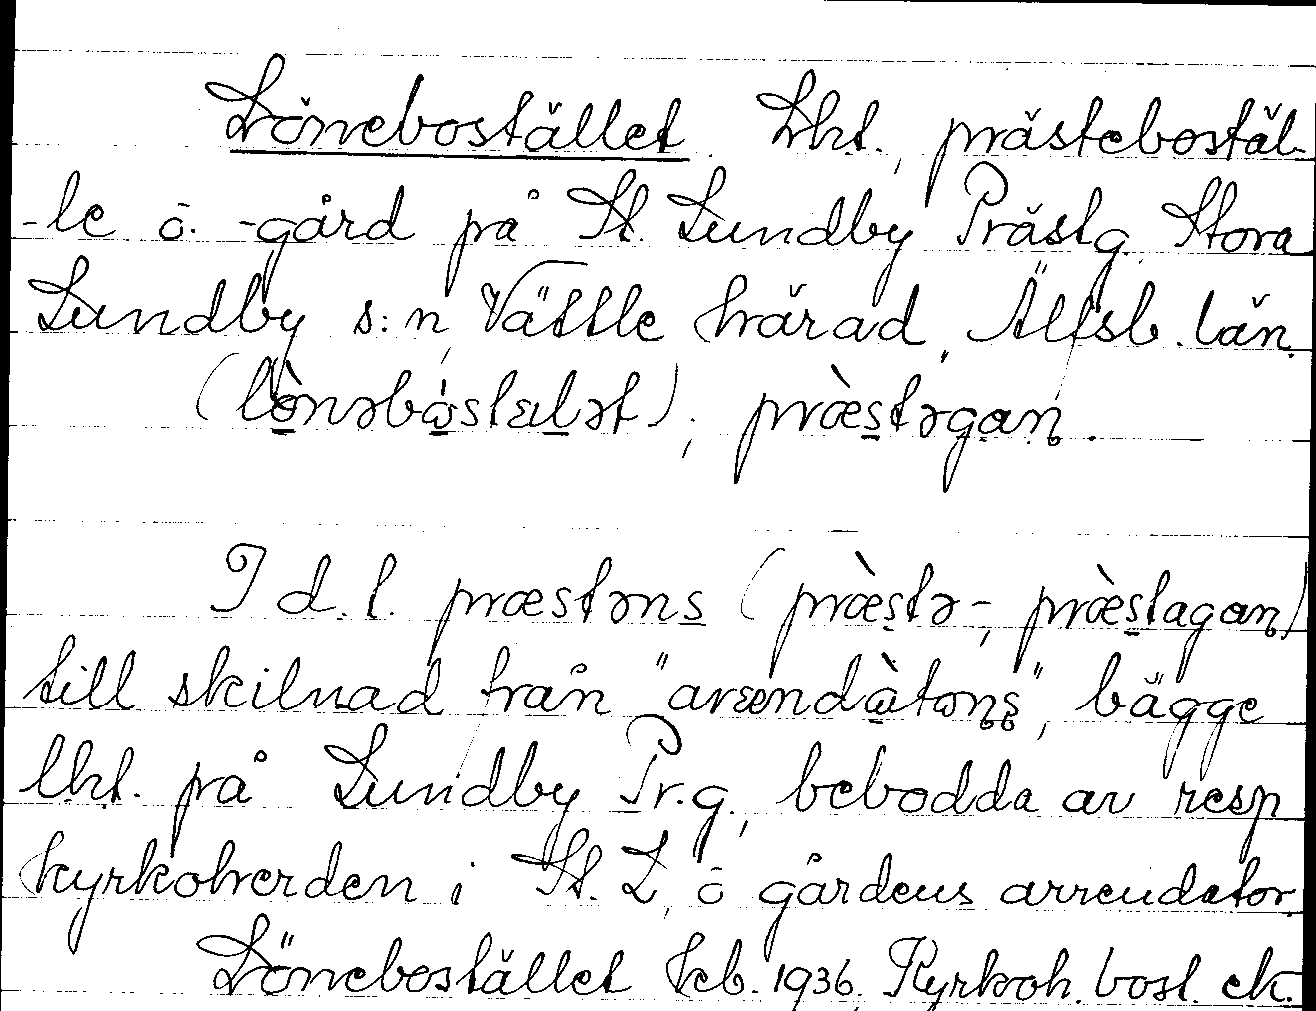 Lönebostället. Lht., prästebostäl-
-le o. -gård på St. Lundby Prästg. Stora
Lundby s:n, Vättle härad, Älfsb. län.
(lònəbòstɛlət); præ̀stəgan.
I d. l. præstəns (præ̀stə-, præ̀stagan)
till skilnad från "arɛndàtorṇs", bägge
lht. på Lundby Pr.g., bebodda av resp
kyrkoherden i St. L, o gårdens arrendator.
Lönebostället Feb. 1936. Kyrkoh. bost. ek.